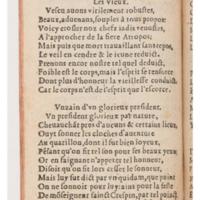 Les Vieux.
Vescu auons virilement robustes,
Beaux, aduenans, souples à tous propos:
Voicy encor nez chefs indis venustes,
A l'approcher de la fiere Atropos:
Mais puis que mort trauaillant sans repos,
Le veil en cendre & le ieune reduict.
Prenons encor nostre tel quel deduict,
Foible est le corps, mais l'esprit se renforce
Dont plus d'honneur la vieillesse conduict
Car le corps n'est de l'esprit que l'escorce.
Vnzain d'vn glorieux president.
Vn president glorieux par nature,
Cheuauchât pres d'aucuns & certain lieu,
Ouyt sonner les cloches d'auenture
Au quarillon, dont il fut bien ioyeux,
Pésant qu'on fist tel son pour ses beaux
Or en faignant n'appeter tel honneur,
Disoit qu'on fit
Mais luy fut dict par vn quidam, que point
On ne sonnoit pour luy: ains pour la feste
De môseigneur sainct Crespin, par tel